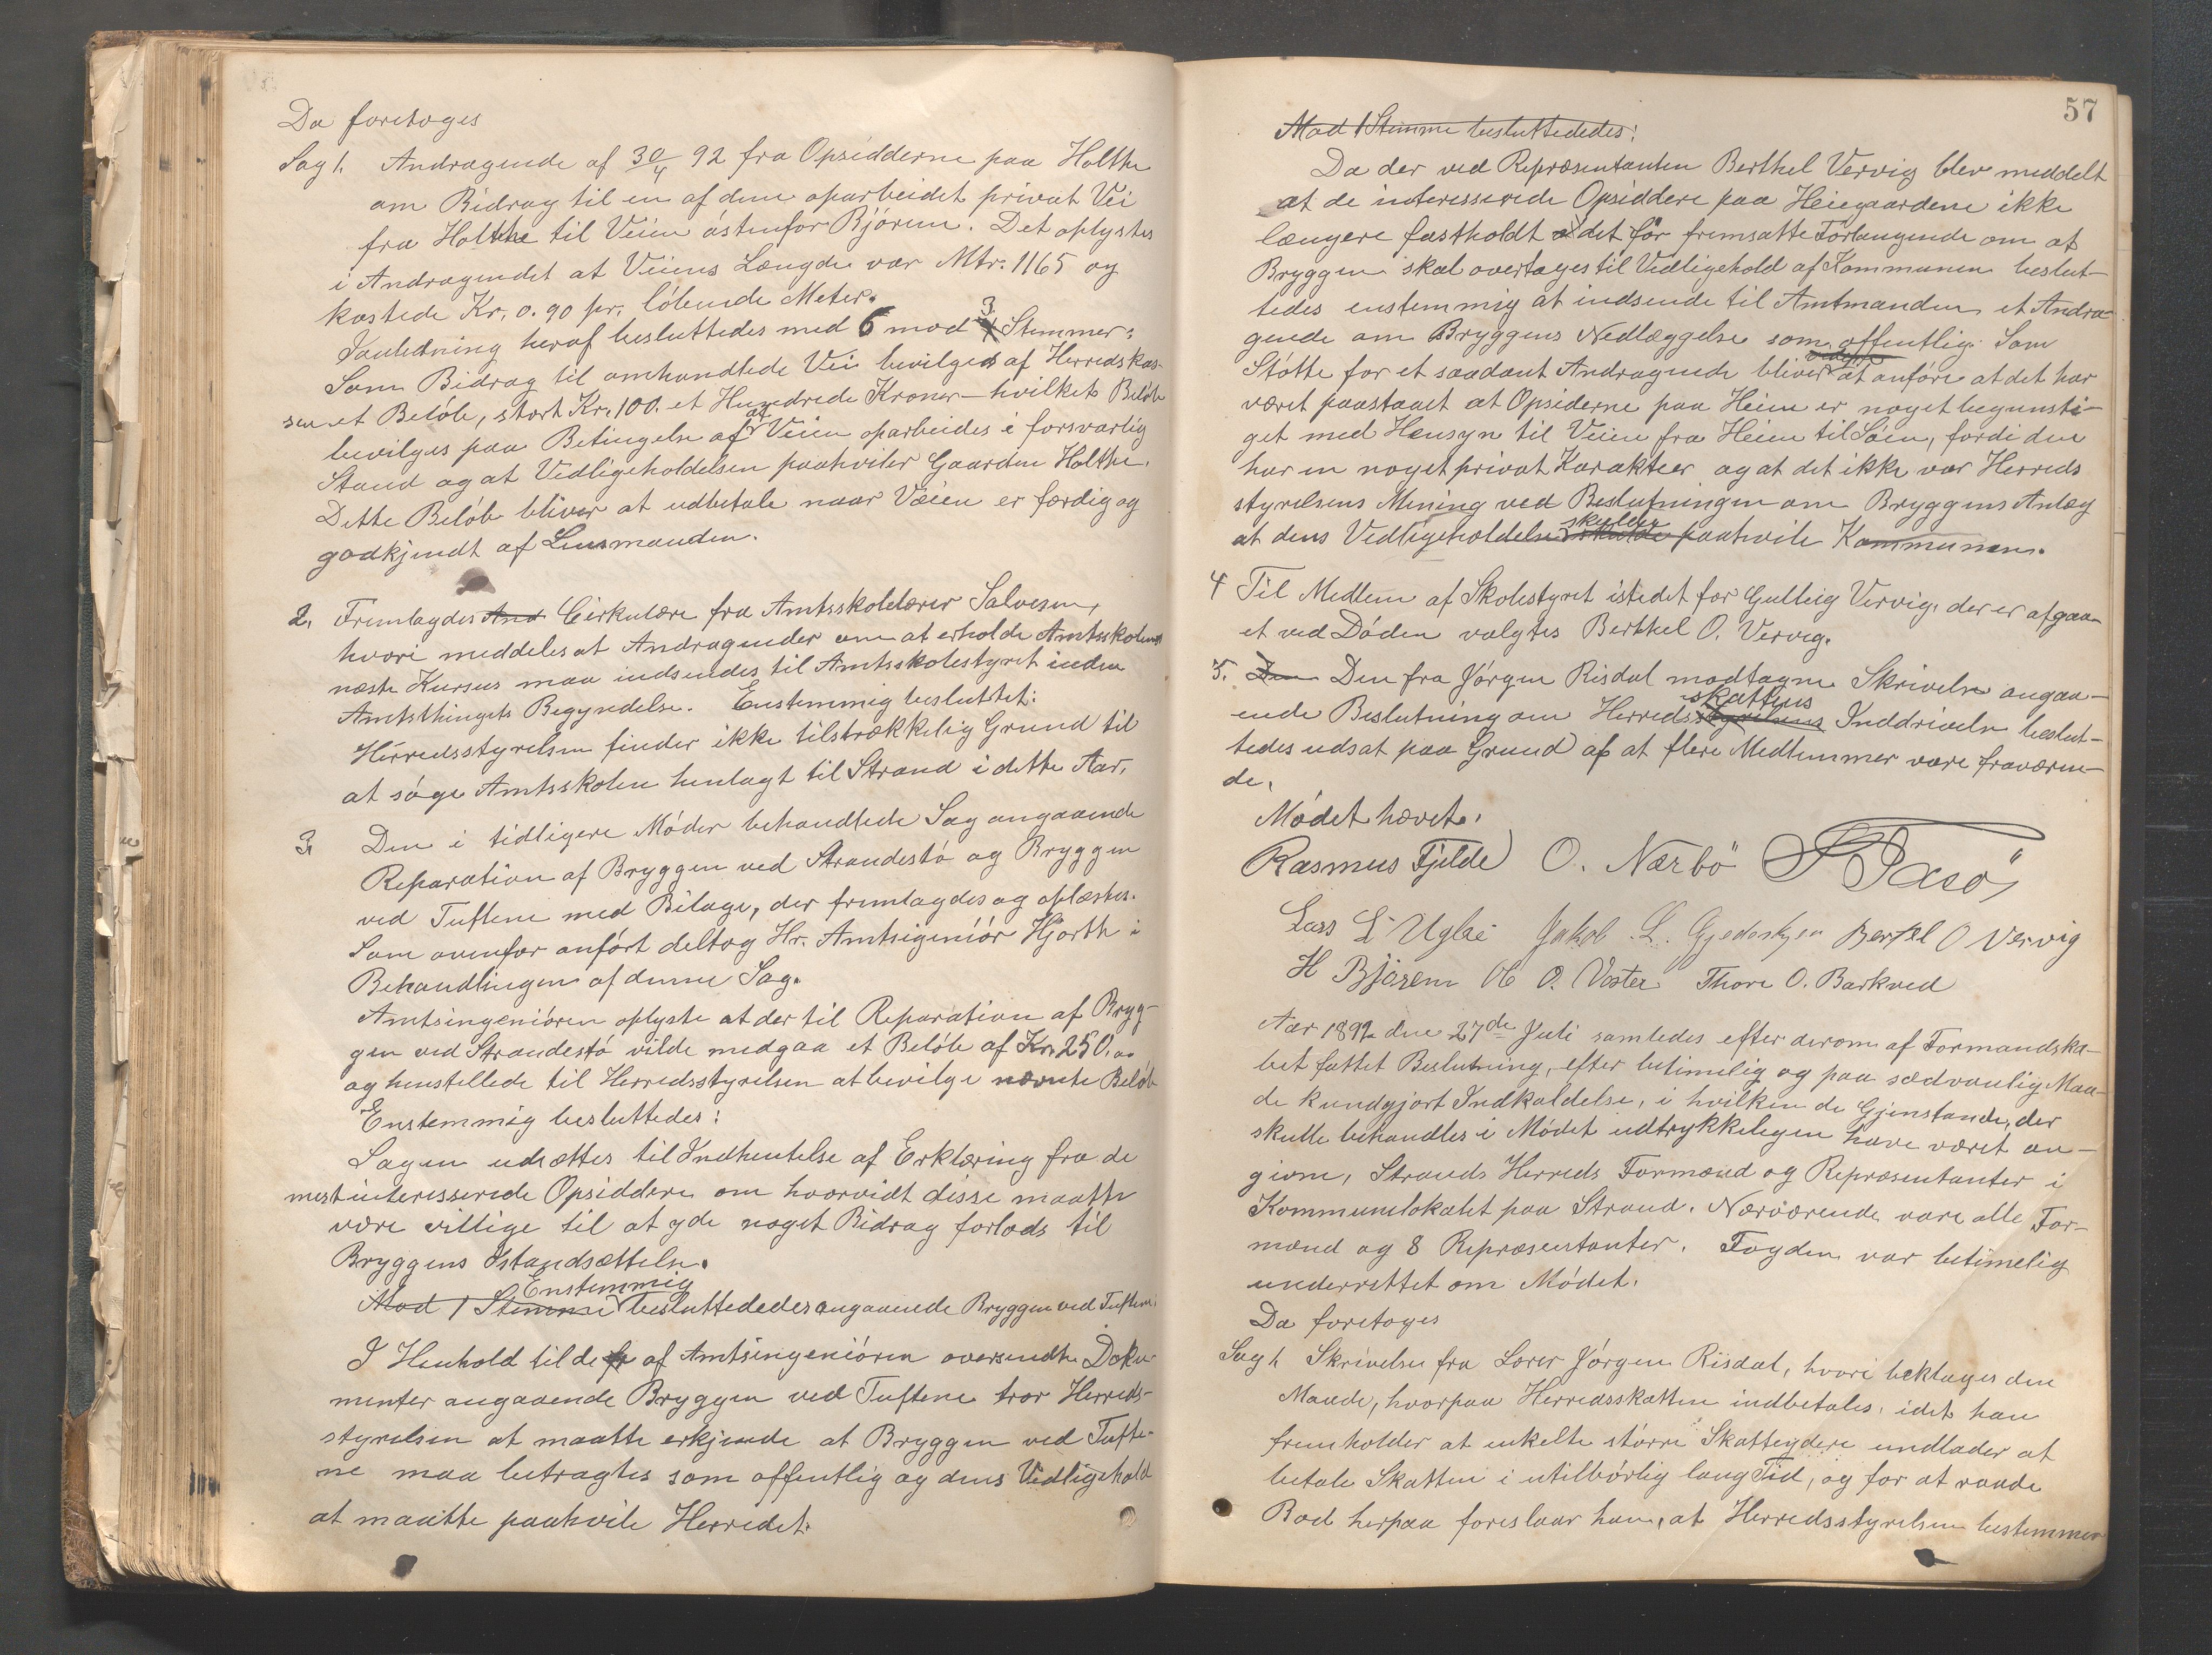 Da foretoges
Sag 1. Andragende af 30/4 92 fra Opsidderne paa Holthe
om Bidrag til en af dem oparbeidet privat Vei
fra Holthe til Veien östenfor Björem. Det oplystes
i Andragendet at Veiens Længde var Mtr. 1165 og
kostede Kr. 0.90 pr. löbende Meter.
I anledning heraf besluttedes med 6 mod 3 Stemmer:
Som Bidrag til omhandlede Vei bevilges af Herredskas-
sen et Belöb, stort Kr. 100. et Hundrede Kroner – hvilket Belöb
bevilges paa Betingelse af at Veien oparbeides i forsvarlig
Stand og at Vedligeholdelsen paahviler Gaarden Holthe.
Dette Belöb bliver at udbetale naar Veien er færdig og
godkjendt af Lensmanden.
2. Fremlagdes And Cirkulære fra Amtsskolelærer Salvesen,
hvori meddeles at Andragender om at erholde Amtsskolens
næste Kursus maa indsendes til Amtsskolestyret inden
Amtsthingets Begyndelse. Enstemmig besluttet:
Herredsstyrelsen finder ikke tilstrækkelig Grund til
at söge Amtsskolen henlagt til Strand i dette Aar.
3. Den i tidligere Möder behandlede Sag angaaende
Reparation af Bryggen ved Strandestö og Bryggen
ved Tuftene med Bilage, der fremlagdes og oplæstes.
Som ovenfor anfört deltog Hr. Amtsigeniör Hjorth i
Behandlingen af denne Sag.
Amtsingeniören oplyste at der til Reparation af Bryg-
gen ved Strandestö vilde medgaa et Belöb af Kr. 250.00
og henstillede til Herredsstyrelsen at bevilge nævnte Belöb
Enstemmig besluttedes:
Sagen udsættes til Indhentelse af Erklæring fra de
mest interesserede Opsiddere om hvorvidt disse maatte
være villige til at yde noget Bidrag forlods til
Bryggens Istandsættelse.
Enstemmig
Mod 1 Stemme besluttededes angaaende Bryggen ved Tuftene:
I Henhold til de fr af Amtsingeniören oversendte Doku-
menter angaaende Bryggen ved Tuftene tror Herreds-
styrelsen at maatte erkjende at Bryggen ved Tufte-
ne maa betragtes som offentlig og dens Vedligehold
at maatte paahvile Herredet.
57
Mod 1 Stemme besluttededes:
Da der ved Repræsentanten Berthel Vervig blev meddelt
at de interesserede Opsiddere paa Heiegaardene ikke
længere fastholdt det för fremsatte Forlangende om at
Bryggen skal overtages til Vedligehold af Kommunen beslut-
tedes enstemmig at indsende til Amtmanden et Andra-
gende om Bryggens Nedlæggelse som offentlig. Som
Stötte for et saadant Andragende bliver at anföre at det har
været paastaaet at Opsiderne paa Heien er noget begunsti-
get med Hensyn til Veien fra Heien til Söen, fordi den
har en noget privat Karakteer og at det ikke var Herreds
styrelsens Mening ved Beslutningen om Bryggens Anlæg
at dens Vedligeholdelse skulde paahvile Kommunen.
4 Til Medlem af Skolestyret istedet for Gulleig Vervig, der er afgaa-
et ved Döden valgtes Berthel O. Vervig.
5. Den Den fra Jörgen Risdal modtagne Skrivelse angaa-
skattens
ende Beslutning om Herredsstyrelsens Inddrivelse beslut-
tedes udsat paa Grund af at flere Medlemmer vare fraværen-
de.
Mödet hævet.
Rasmus Fjelde O. Nærbö
Lars L. Ugbei Jakob L. Bertel O Vervig
H Bjørem O. Voster Thore O. Barkved
Aar 1892 den 27de Juli samledes efter derom af Formandska-
bet fattet Beslutning, efter betimelig og paa sædvanlig Maa-
de kundgjort Indkaldelse, i hvilken de Gjenstande, der
skulle behandles i Mödet udtrykkeligen have været an-
givne, Strands Herreds Formænd og Repræsentanter i
Kommunelokalet paa Strand. Nærværende vare alle For-
mænd og 8 Repræsentanter. Fogden var betimelig
underrettet om Mödet.
Da foretoges
Sag 1 Skrivelse fra Lærer Jörgen Riisdal, hvori beklages den
Maade, hvorpaa Herredsskatten indbetales, idet han
fremholder at enkelte större Skatteydere undlader at
betale Skatten i utilbörlig lang Tid, og for at raade
Bod herpaa foreslaar han, at Herredsstyrelsen bestemmer